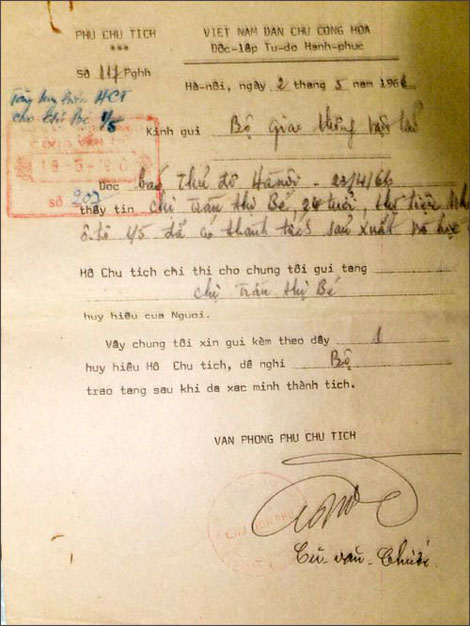 PHU CHU TICH
***
Số 117 Pghh
VIET NAM DAN CHU CONG HOA
Dôc-lâp Tu-do Hanh-phuc
Hà-nôi, ngày 2 thang 5 nam 196
HCT
cho 1/5
Kinh gui Bộ Giao thông vận tải
SỐ 207
Doc báo Thủ đô Hànội - 23/4/66
thấy tin chị Trần thị Bé 24 tuổi thợ tiện
ô-tô 1/5 đã có thành tích sản xuất và học
Hồ Chu tich chi thi cho chung tôi gui tang
chị Trần thị Bé
huy hiêu cua Nguoi.
Vây chung tôi xin gui kèm theo dây 1
huy hiêu Hồ Chu tich, dê nghi Bộ
trao tang sau khi da xac minh thành tich.
VAN PHONG PHU CHU TICH